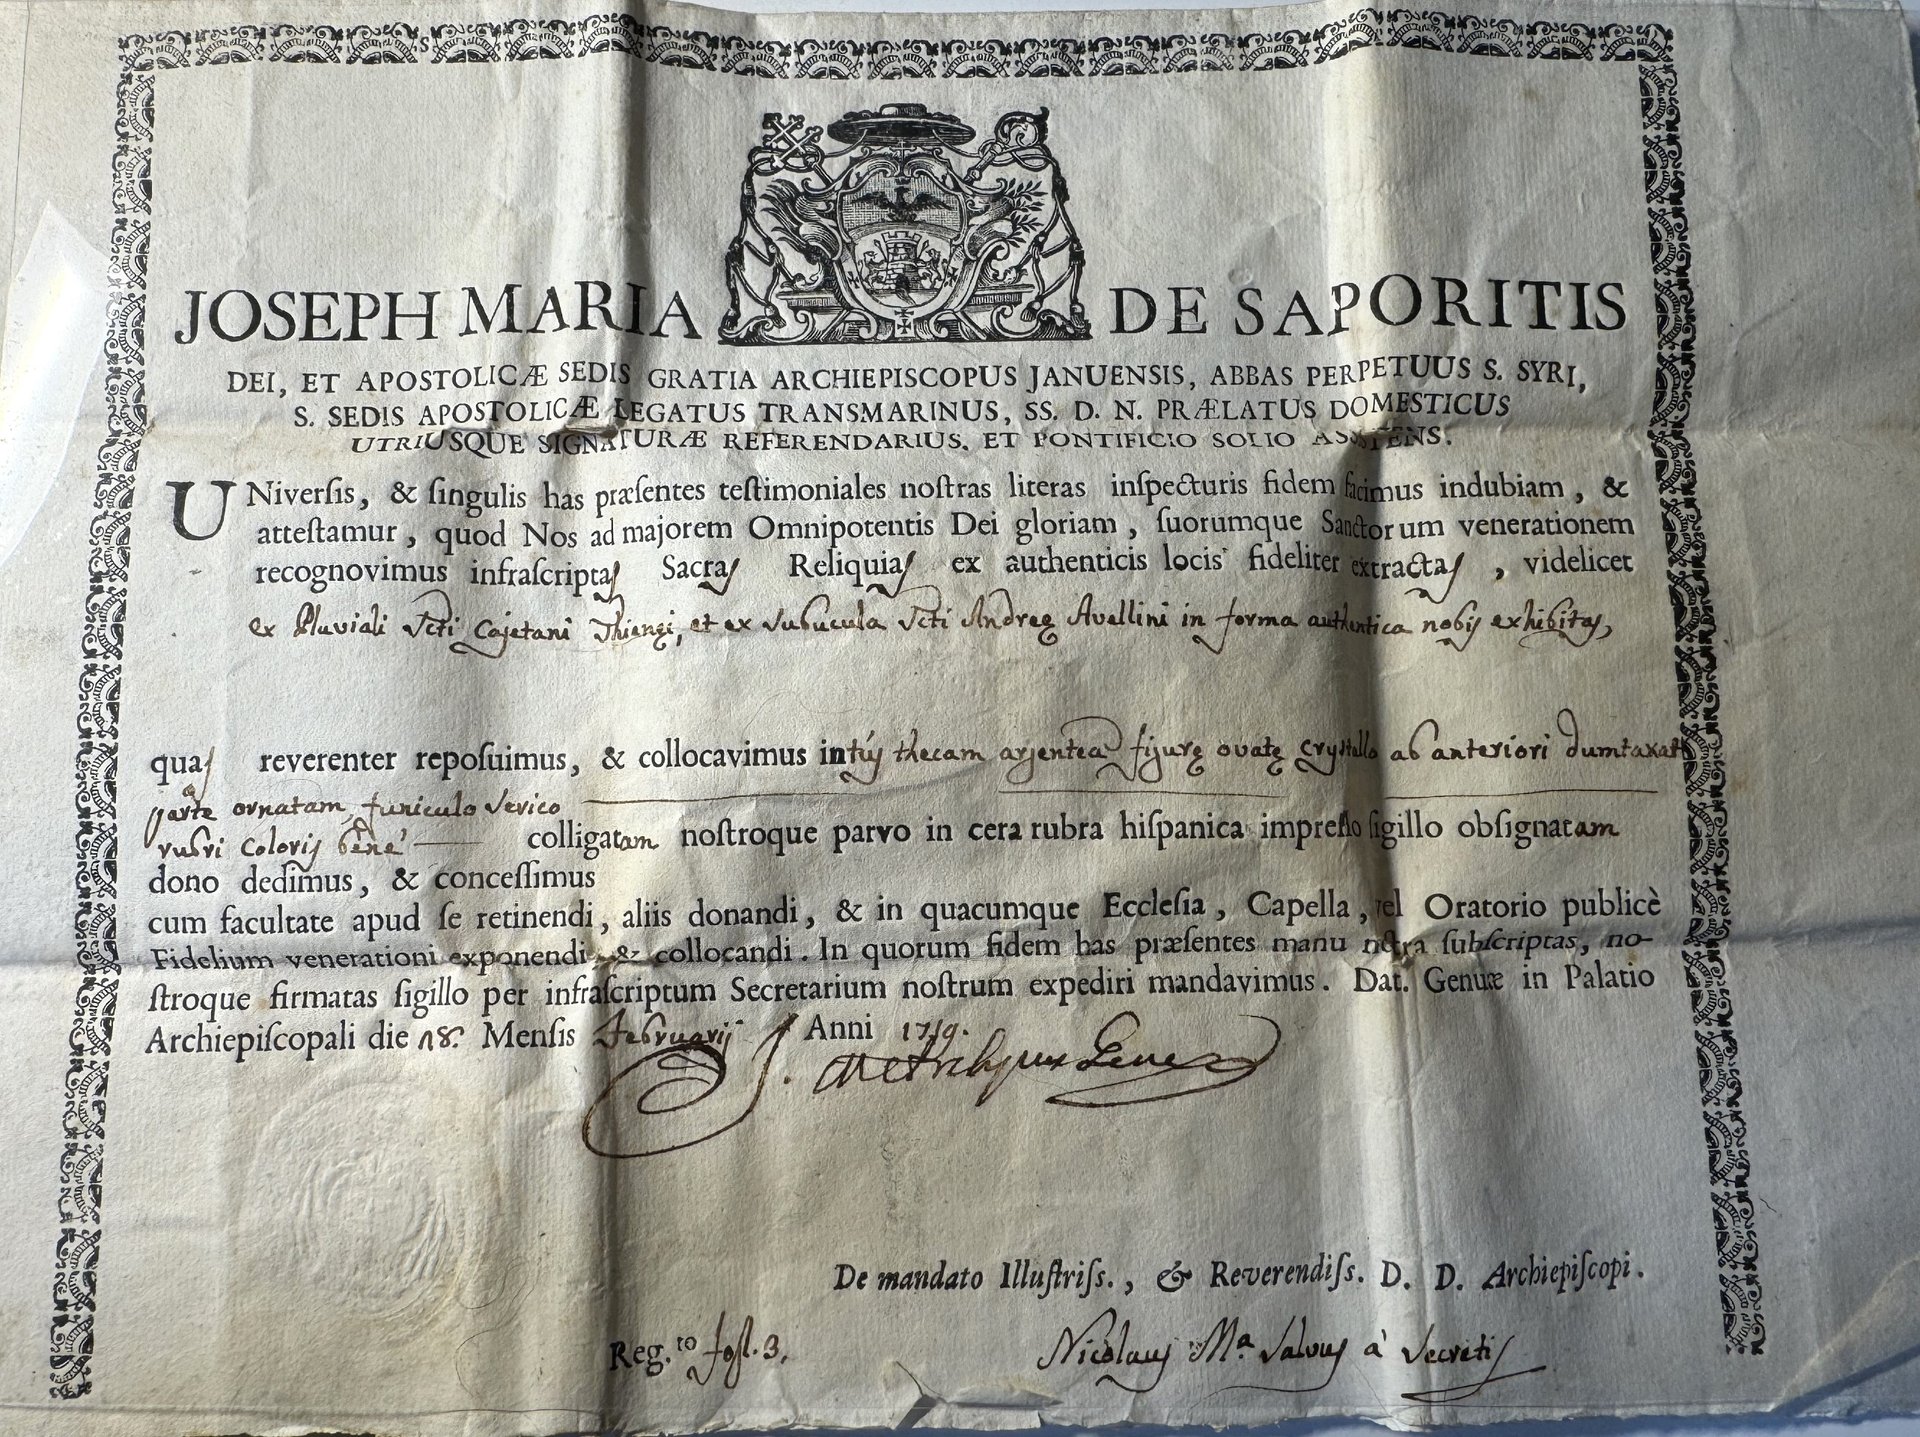 JOSEPH MARIA DE SAPORITIS
DEI, ET APOSTOLICÆ SEDIS GRATIA ARCHIEPISCOPUS JANUENSIS, ABBAS PERPETUUS S. SYRI,
S. SEDIS APOSTOLICÆ LEGATUS TRANSMARINUS, SS. D. N. PRÆLATUS DOMESTICUS
UTRIUSQUE SIGNATURÆ REFERENDARIUS. ET PONTIFICIO SOLIO ASSISTENS.
UNiverſis, & ſingulis has præſentes teſtimoniales noſtras literas inſpecturis fidem facimus indubiam, &
atteſtamur, quod Nos ad majorem Omnipotentis Dei gloriam, ſuorumque Sanctorum venerationem
recognovimus infraſcriptas Sacras Reliquias ex authenticis locis fideliter extractas, videlicet
ex Pluviali Scti Cajetani Thienei, et ex subucula Scti Andreę Avellini in forma authentica nobis exhibitas,
quas reverenter repoſuimus, & collocavimus intùs thecam argentea figurę ovatę crystallo ab anteriori dumtaxat
parte ornatam, funiculo serico
rubri coloris benè colligatam noſtroque parvo in cera rubra hiſpanica impreſſo ſigillo obſignatam
dono dedimus, & conceſſimus
cum facultate apud ſe retinendi, aliis donandi, & in quacumque Eccleſia, Capella, vel Oratorio publicè
Fidelium venerationi exponendi & collocandi. In quorum fidem has præſentes manu noſtra ſubſcriptas, no-
ſtroque firmatas ſigillo per infraſcriptum Secretarium noſtrum expediri mandavimus. Dat. Genuæ in Palatio
Archiepiſcopali die 18. Menſis Februarij Anni 1759.
J.
De mandato Illuſtriſs., & Reverendiſs. D. D. Archiepiſcopi.
Reg.to fol. 3.
Nicolaus Ma. Salvus à Secretis